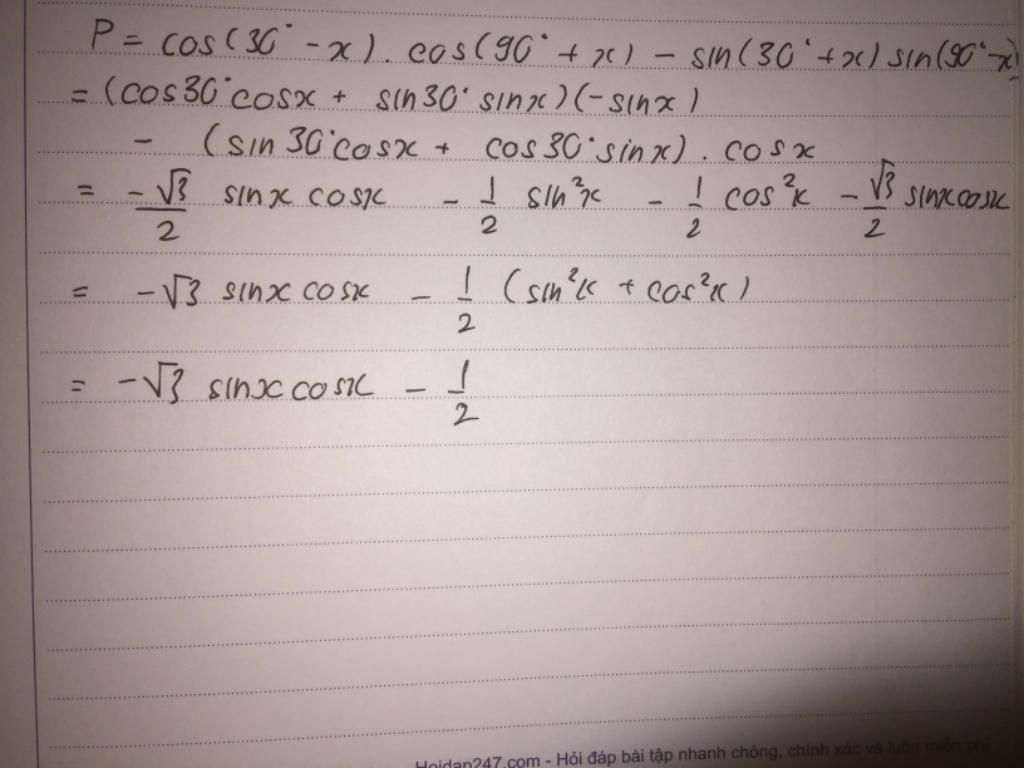 P = cos(30° - x). cos(90° + x) - sin(30° + x) sin(90° - x)
= (cos30° cosx + sin30° sinx)(-sinx)
- (sin30° cosx + cos30° sinx). cosx
= -√3/2 sinx cosx - 1/2 sin²x - 1/2 cos²x - √3/2 sinxcosx
= -√3 sinx cosx - 1/2 (sin²x + cos²x)
= -√3 sinx cosx - 1/2
Hoidap247.com - Hỏi đáp bài tập nhanh chóng, chính xác và luôn miễn phí